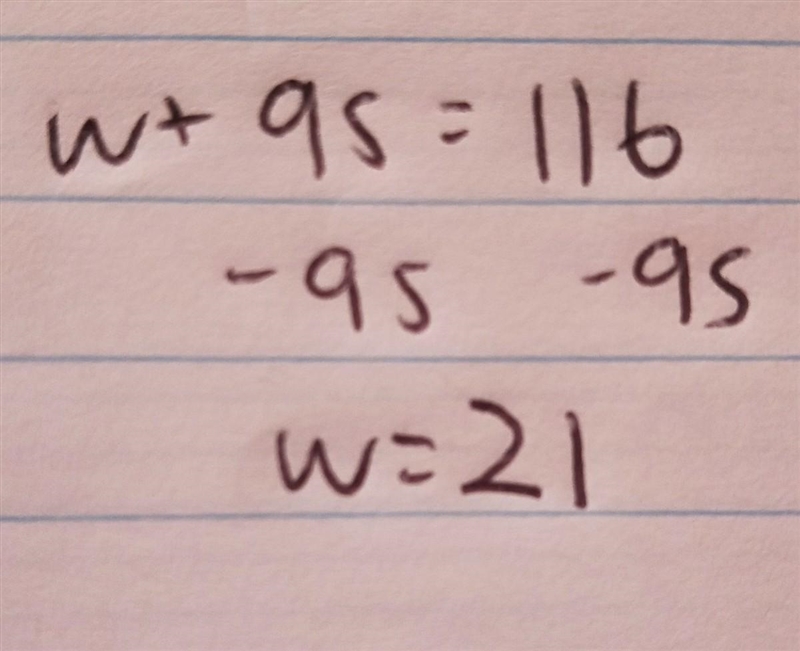 w + 95 = 116
-95 -95
w = 21